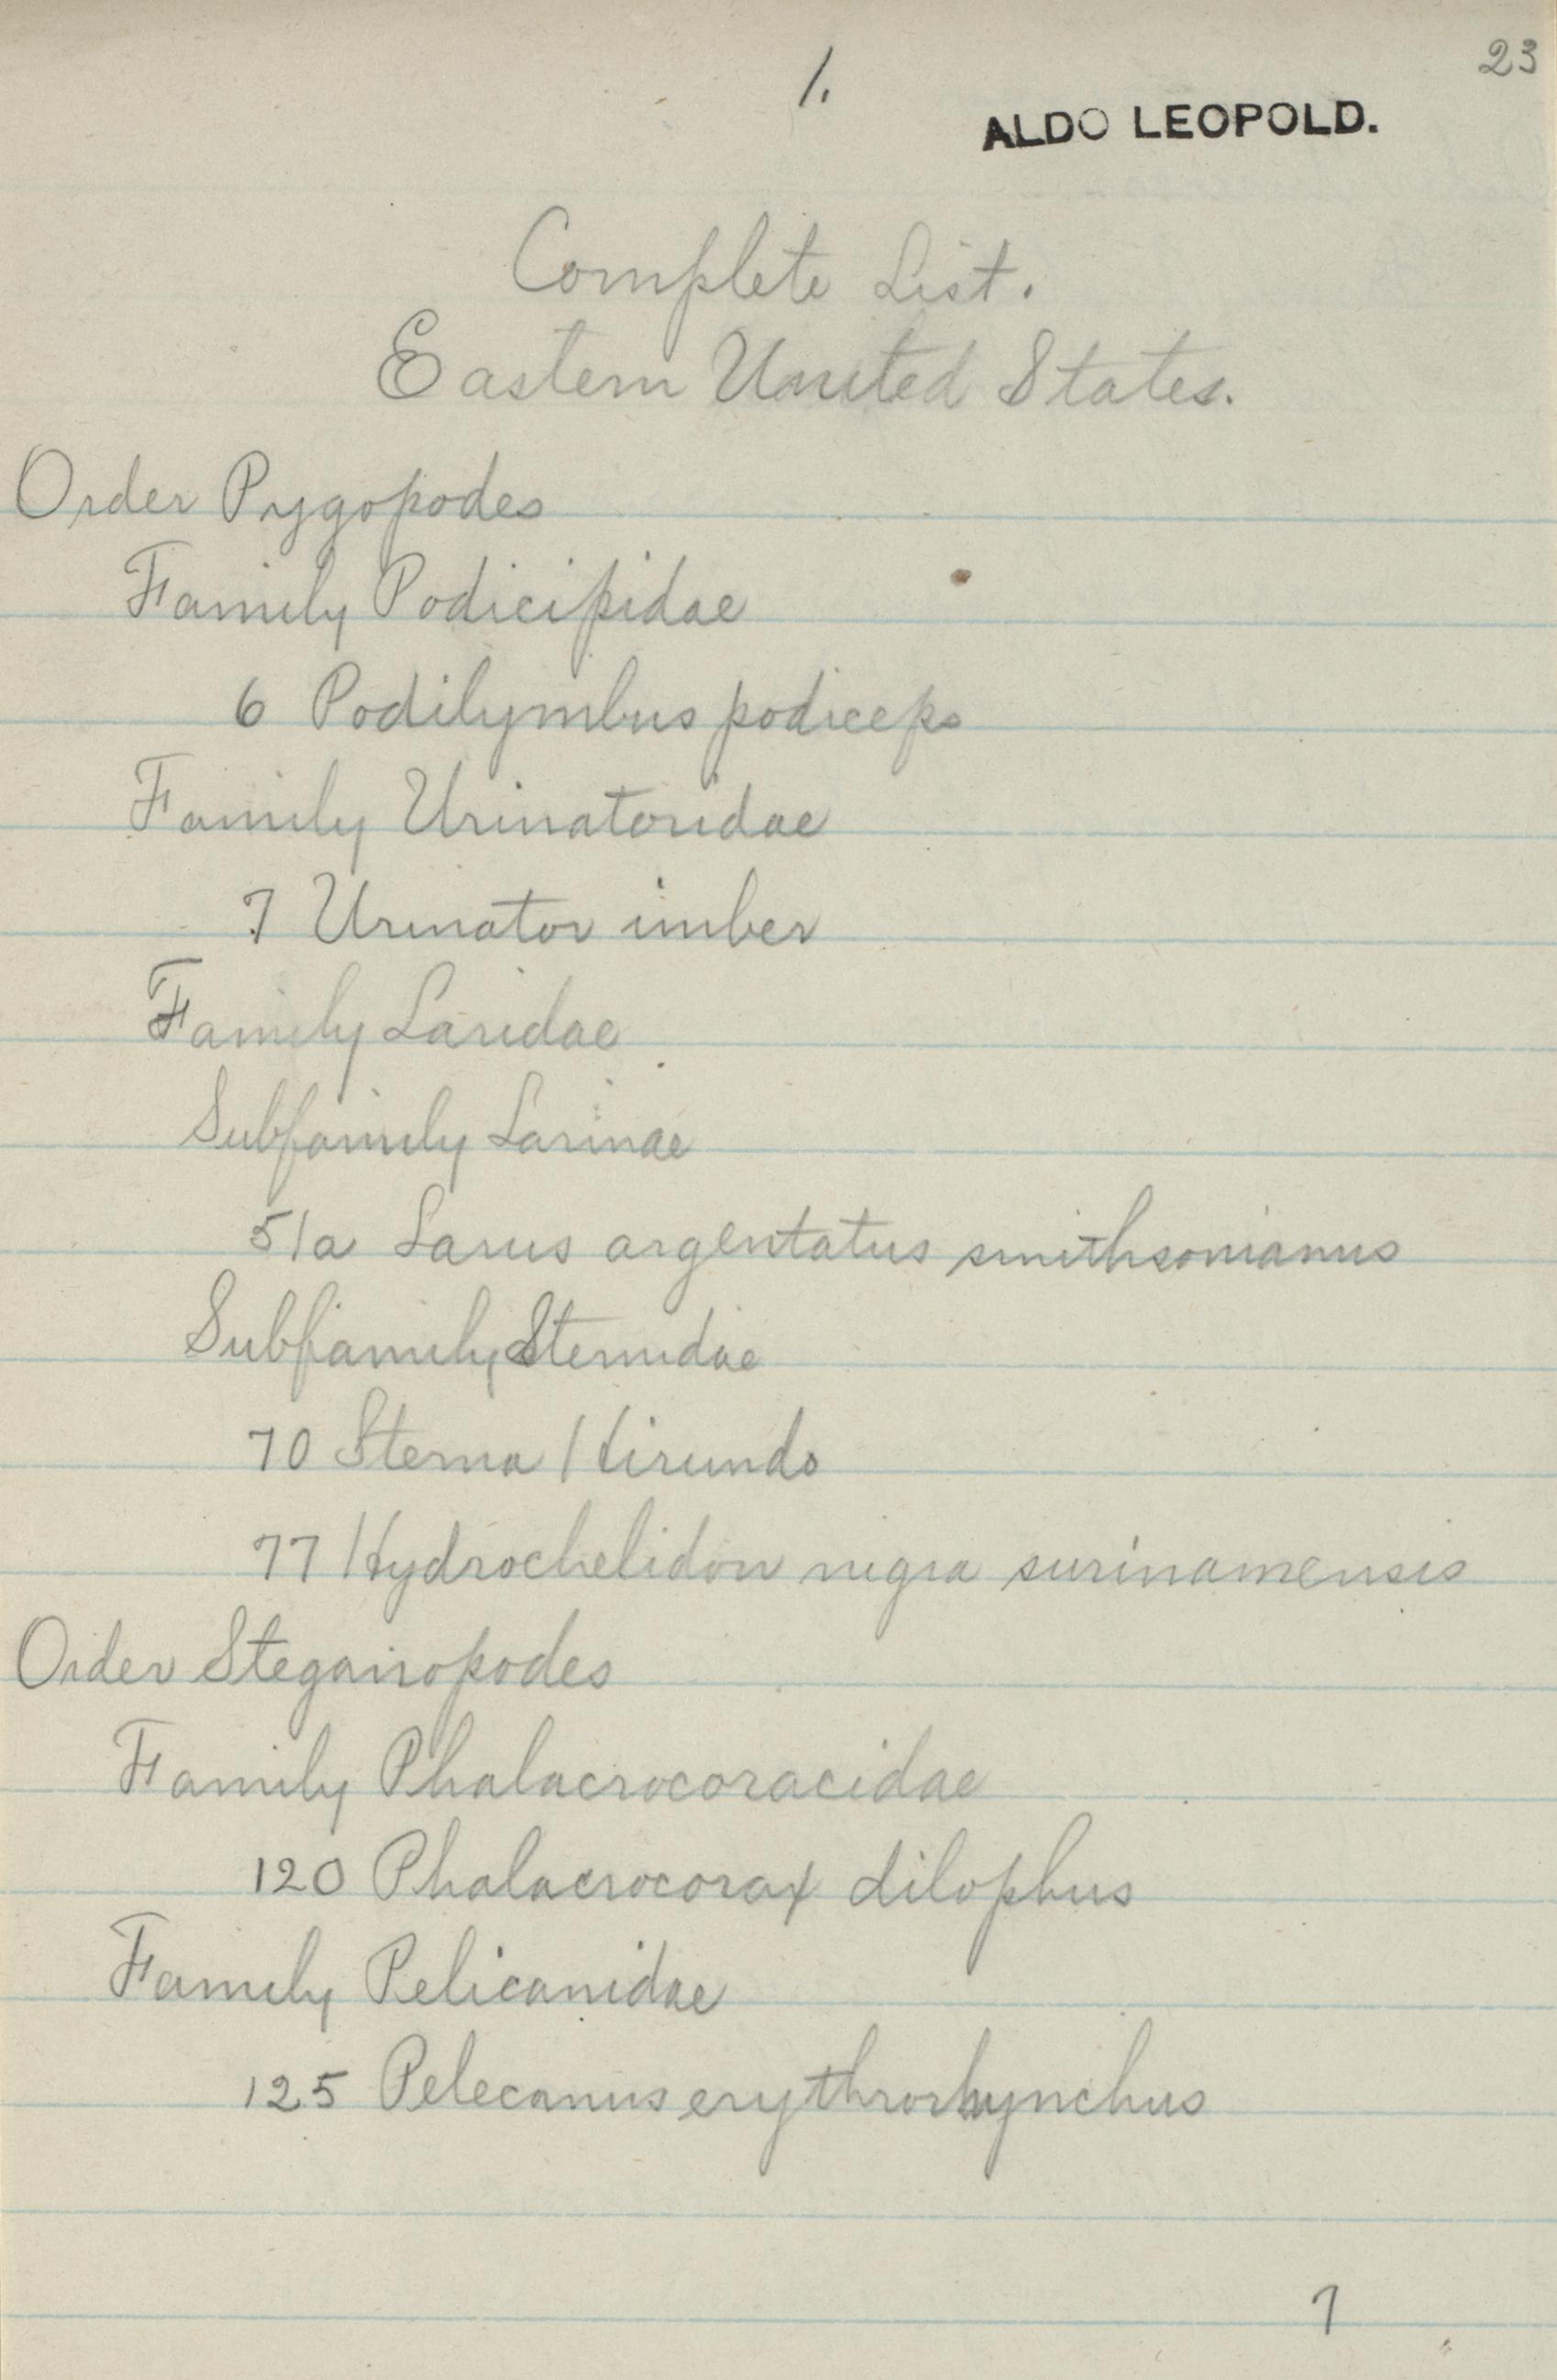 23
1.
ALDO LEOPOLD.
Complete List.
Eastern United States.
Order Pygopodes
Family Podicipidae
6 Podilymbus podiceps
Family Urinatoridae
7 Urinator imber
Family Laridae
Subfamily Larinae
51a Larus argentatus smithsonianus
Subfamily Sternidae
70 Sterna Hirundo
77 Hydrochelidon nigra surinamensis
Order Steganopodes
Family Phalacrocoracidae
120 Phalacrocorax dilophus
Family Pelicanidae
125 Pelecanus erythrorhynchus
7